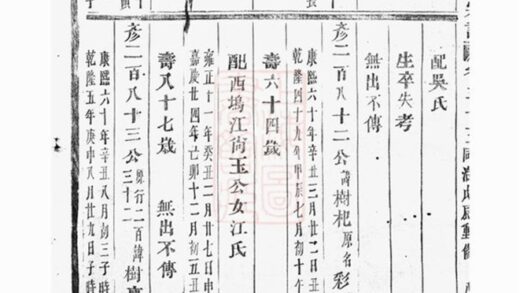 配吳氏
生卒失考
無出不傳
彥二百八十二公諱樹杞原名彩
康熙六十年辛丑三月廿二日丑
乾隆四十九年甲辰七月初十午
壽六十四歲
配西塢江尚玉公女江氏
雍正十一年癸丑二月廿七日申
嘉慶廿四年己卯十二月初五丑
壽八十七歲 無出不傳
彥二百八十三公原行二百三十二諱樹
康熙六十年辛丑八月初三子時
乾隆五年庚申八月廿九日子時